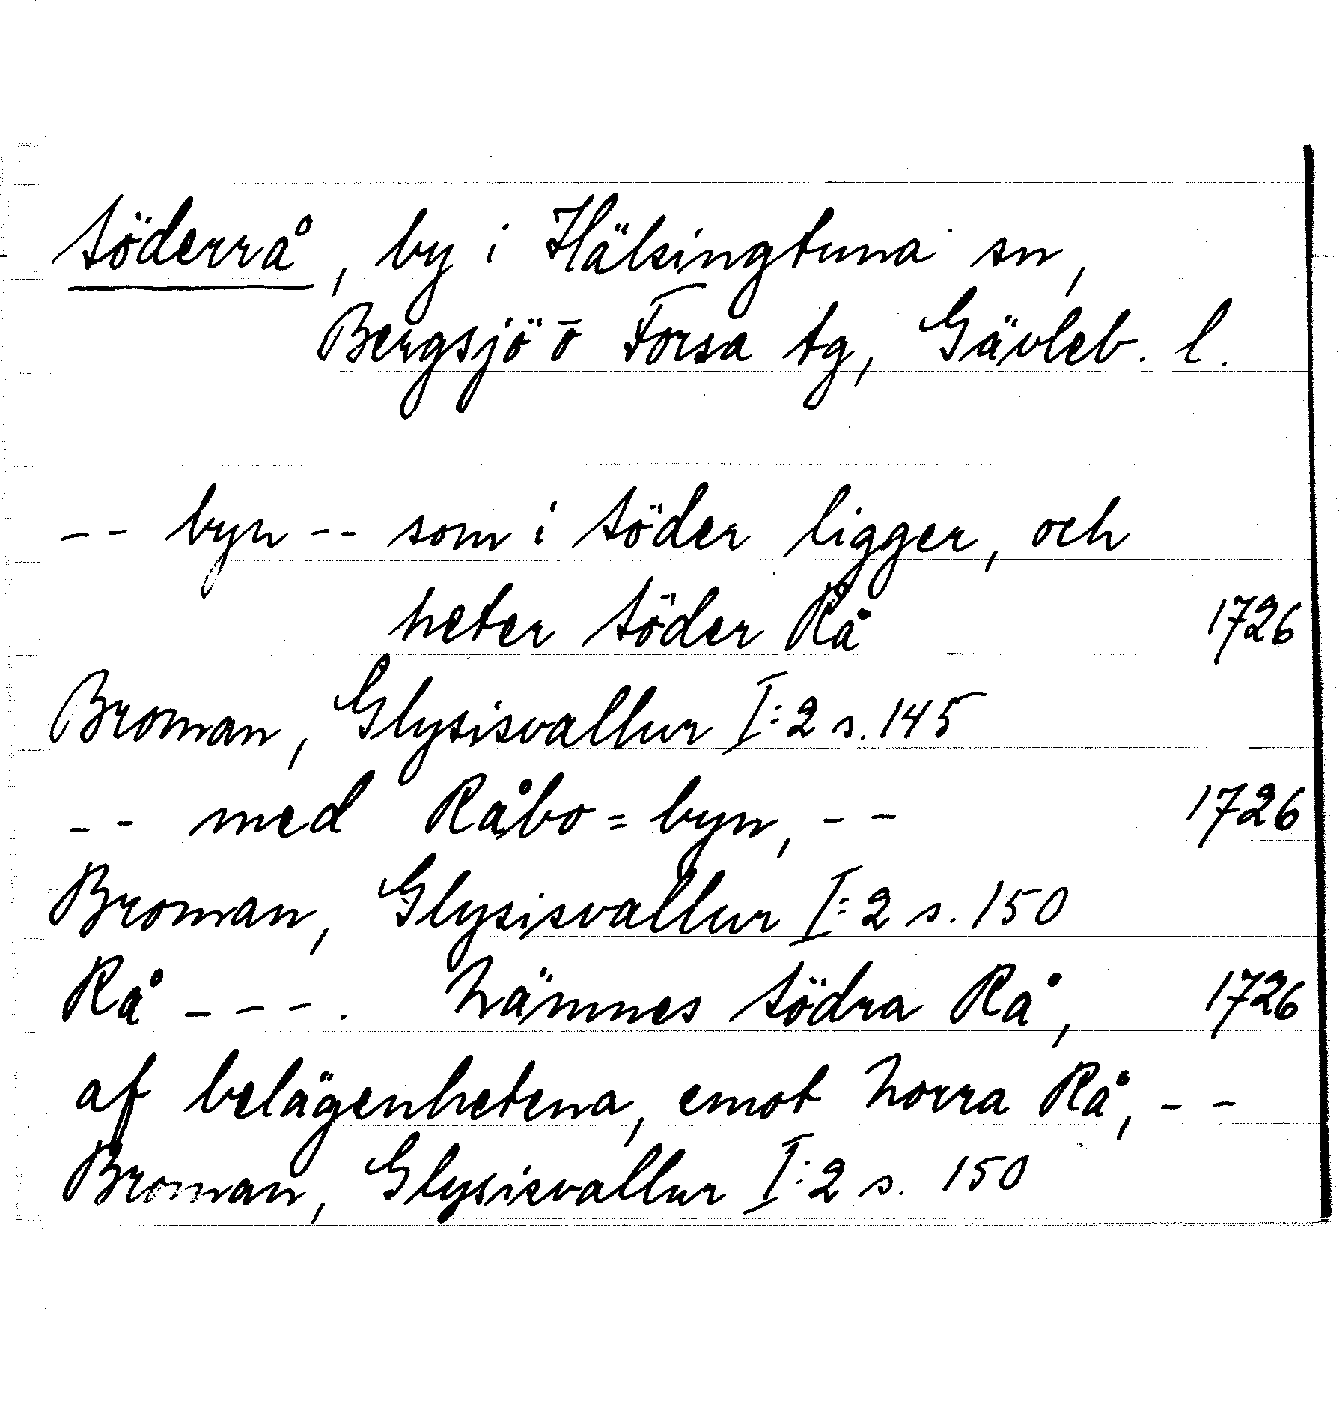 Söderrå, by i Hälsingtuna sn,
Bergsjö o Forsa tg, Gävleb. l.
-- byn -- som i Söder ligger, och
heter Söder Rå 1726
Broman, Glysisvallur I:2 s. 145
-- med Råbo=byn, -- 1726
Broman, Glysisvallur I:2 s. 150
Rå ---. Nämnes Södra Rå, 1726
af belägenhetena, emot Norra Rå, --
Broman, Glysisvallur I:2 s. 150